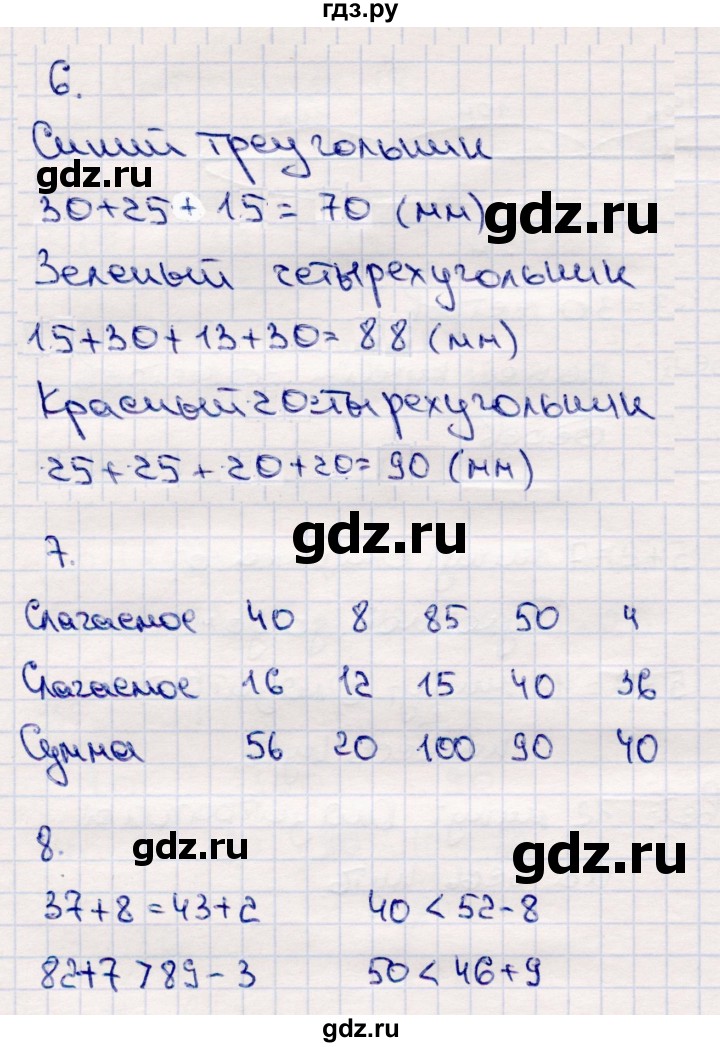 гдз.ру
6.
Синий треугольник
gdz.ru
30+25+15=70 (мм)
gdz.ru
Зеленый четырехугольник
15+30+13+30=88 (мм)
Красный
25+25+20+20=90 (мм)
gdz.ru
7.
Слагаемое 40 8 85 50 4
Слагаемое 16 12 15 40 36
Сумма 56 20 100 90 40
8.
gdz.ru
gdz.ru
37+8=43+2 40<52-8
82+7>89-3 50<46+9
gdz.ru